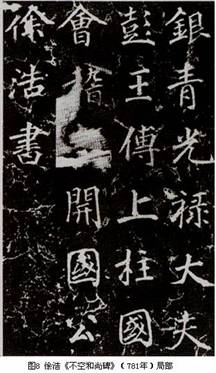 銀青光禄大夫
彭王傅上柱國
會稽開國公
徐浩書
图8 徐浩《不空和尚碑》（781年）局部